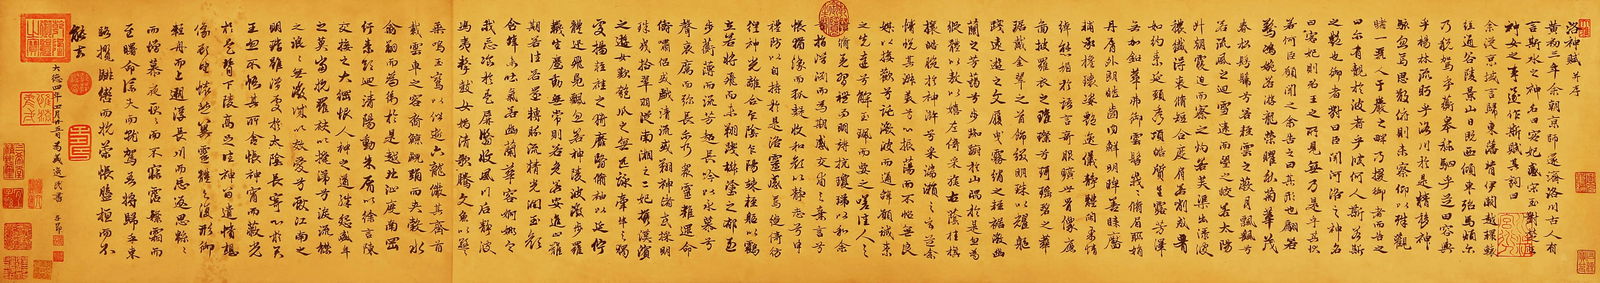 洛神賦 并序
黄初三年余朝京師還濟洛川古人有
言斯水之神名曰宓妃感宋玉對楚王
神女之事遂作斯賦其詞曰
余從京域言歸東藩背伊闕越轘轅
經通谷陵景山日既西傾車殆馬煩尔
乃税駕乎蘅皋秣駟乎芝田容與
乎楊林流眄乎洛川於是精移神
駭忽焉思散俯則未察仰以殊觀
睹一麗人于巖之畔乃援御者而告之
曰尔有覿於彼者乎彼何人斯若此
之艷也御者對曰臣聞河洛之神名
曰宓妃則君王之所見無乃是乎其狀
若何臣願聞之余告之曰其形也翩若
驚鴻婉若游龍榮曜秋菊華茂
春松髣髴兮若輕雲之蔽月飄飖兮
若流風之迴雪遠而望之皎若太陽
升朝霞迫而察之灼若芙蕖出淥波
穠纖得衷脩短合度肩若削成腰
如約素延頸秀項皓質呈露芳澤
無加鉛華弗御雲髻峩々脩眉聯娟
丹唇外朗皓齒内鮮明眸善睞靨
輔承權瓌姿艷逸儀靜體閑柔情
綽態媚於語言奇服曠世骨像應
圖披羅衣之璀璨兮珥瑤碧之華
琚戴金翠之首飾綴明珠以耀軀
踐遠遊之文履曳霧綃之輕裾微幽
蘭之芳藹兮步踟躕於山隅於是忽焉
縱體以遨以嬉左倚采旄右蔭桂旗
攘皓腕於神滸兮采湍瀨之玄芝余
情悦其淑美兮心振蕩而不怡無良
媒以接歡兮託微波而通辭願誠素
之先達兮解玉佩而要之嗟佳人之
信脩羌習禮而明詩抗瓊珶以和余
兮指潛淵而為期感交甫之棄言兮
悵猶豫而狐疑收和顏以靜志兮申
禮防以自持於是洛靈感焉徙倚彷
徨神光離合乍陰乍陽竦輕軀以鶴
立若將飛而未翔踐椒塗之郁烈
步蘅薄而流芳超長吟以永慕兮
聲哀厲而彌長尔乃衆靈雜遝命
儔嘯侣或戲清流或翔神渚或採明
珠或拾翠羽從南湘之二妃攜漢濱
之遊女歎匏瓜之無匹詠牽牛之獨
處揚輕袿之猗靡翳脩袖以延佇
體迅飛鳧飄忽若神陵波微步羅
韈生塵動無常則若危若安進止難
期若往若還轉眄流精光潤玉顏
含辭未吐氣若幽蘭華容婀娜令
我忘飡於是屏翳收風川后靜波
馮夷擊鼓女媧清歌騰文魚以警
乘鳴玉鸞以偕逝六龍儼其齊首
載雲車之容裔鯨鯢踊而夾轂水
禽翔而為衛於是越北沚度南岡
紆素領迴清陽動朱唇以徐言陳
交接之大綱恨人神之道殊怨盛年
之莫當抗羅袂以掩涕兮淚流襟
之浪々無微情以效愛兮獻江南之
明璫雖潛處於太陰長寄心於君
王忽不悟其所舍悵神宵而蔽光
於是背下陵高足往神留遺情想
像顧望懷愁冀靈體之復形御
輕舟而上遡浮長川而忘返思緜々
而增慕夜耿々而不寐霑繁霜而
至曙命僕夫而就駕吾將歸乎東
路攬騑轡而抗策悵盤桓而不
能去
大德四年四月廿五日為盛逸民書 子昂